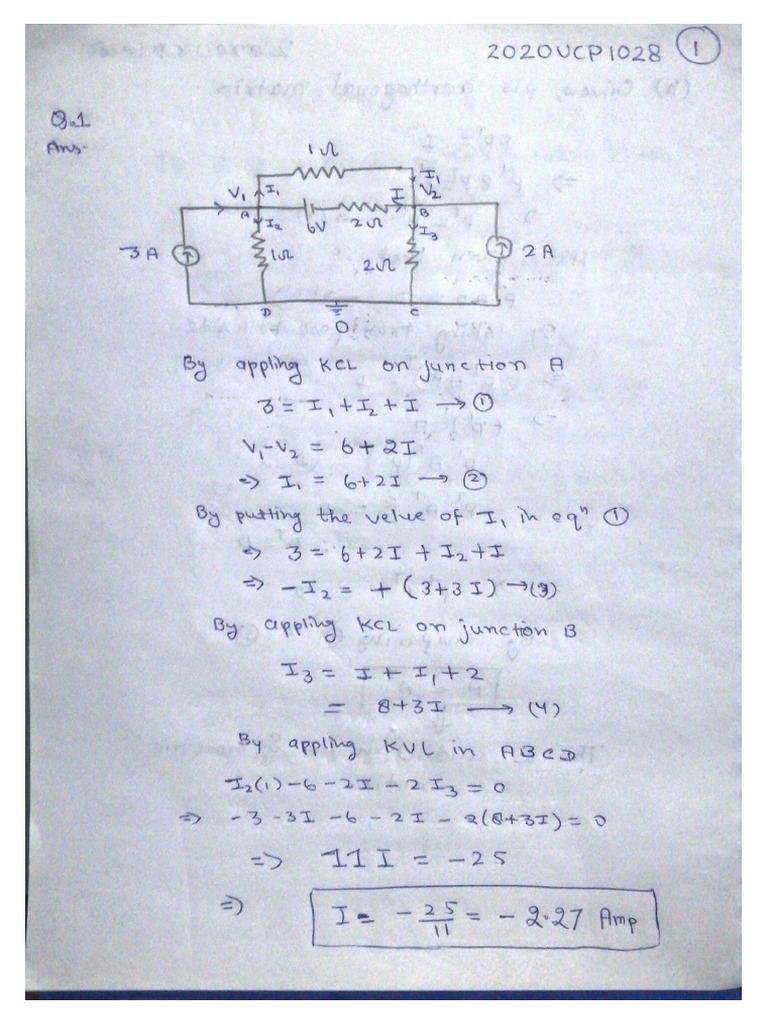 2020UCP1028 ①
Q.1
Ans.
1Ω
V₁ I₁ I I₁ V₂
A I₂ 6V 2Ω B I₃
3A 1Ω 2Ω 2A
D C
O
By appling KCL on junction A
3 = I₁ + I₂ + I → ①
V₁-V₂ = 6+2I
⇒ I₁ = 6+2I → ②
By putting the velue of I₁ in eqⁿ ①
⇒ 3 = 6+2I + I₂+I
⇒ -I₂ = + (3+3I) →(3)
By appling KCL on junction B
I₃ = I + I₁+2
= 8+3I → (4)
By appling KVL in ABCD
I₂(1)-6-2I-2I₃ = 0
⇒ -3-3I-6-2I-2(8+3I) = 0
⇒ 11I = -25
⇒ I = -25/11 = -2.27 Amp